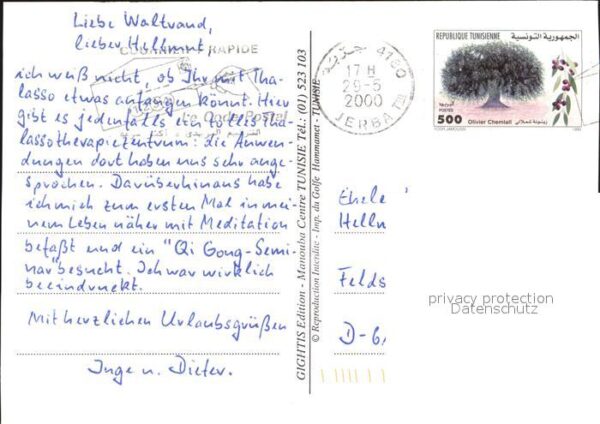 Liebe Waltraud,
lieber Hellmut,
ich weiß nicht, ob Ihr mit Tha-
lasso etwas anfangen könnt. Hier
gibt es jedenfalls ein tolles Tha-
lassotherapiezentrum: die Anwen-
dungen dort haben uns sehr ange-
sprochen. Darüberhinaus habe
ich mich zum ersten Mal in mei-
nem Leben näher mit Meditation
befaßt und ein "Qi Gong-Semi-
nar" besucht. Ich war wirklich
beeindruckt.
Mit herzlichen Urlaubsgrüßen
Inge u. Dieter.
RAPIDE
Le Code Postal
GIGHTIS Edition - Manouba Centre TUNISIE Tél.: (01) 523 103
© Reproduction Interdite - Imp. du Golfe Hammamet - TUNISIE
4180
17 H
29-5
2000
JERBA
REPUBLIQUE TUNISIENNE الجمهورية التونسية
500
Olivier Chemlali
Ehele
Helln
Felds
D-6
privacy protection
Datenschutz